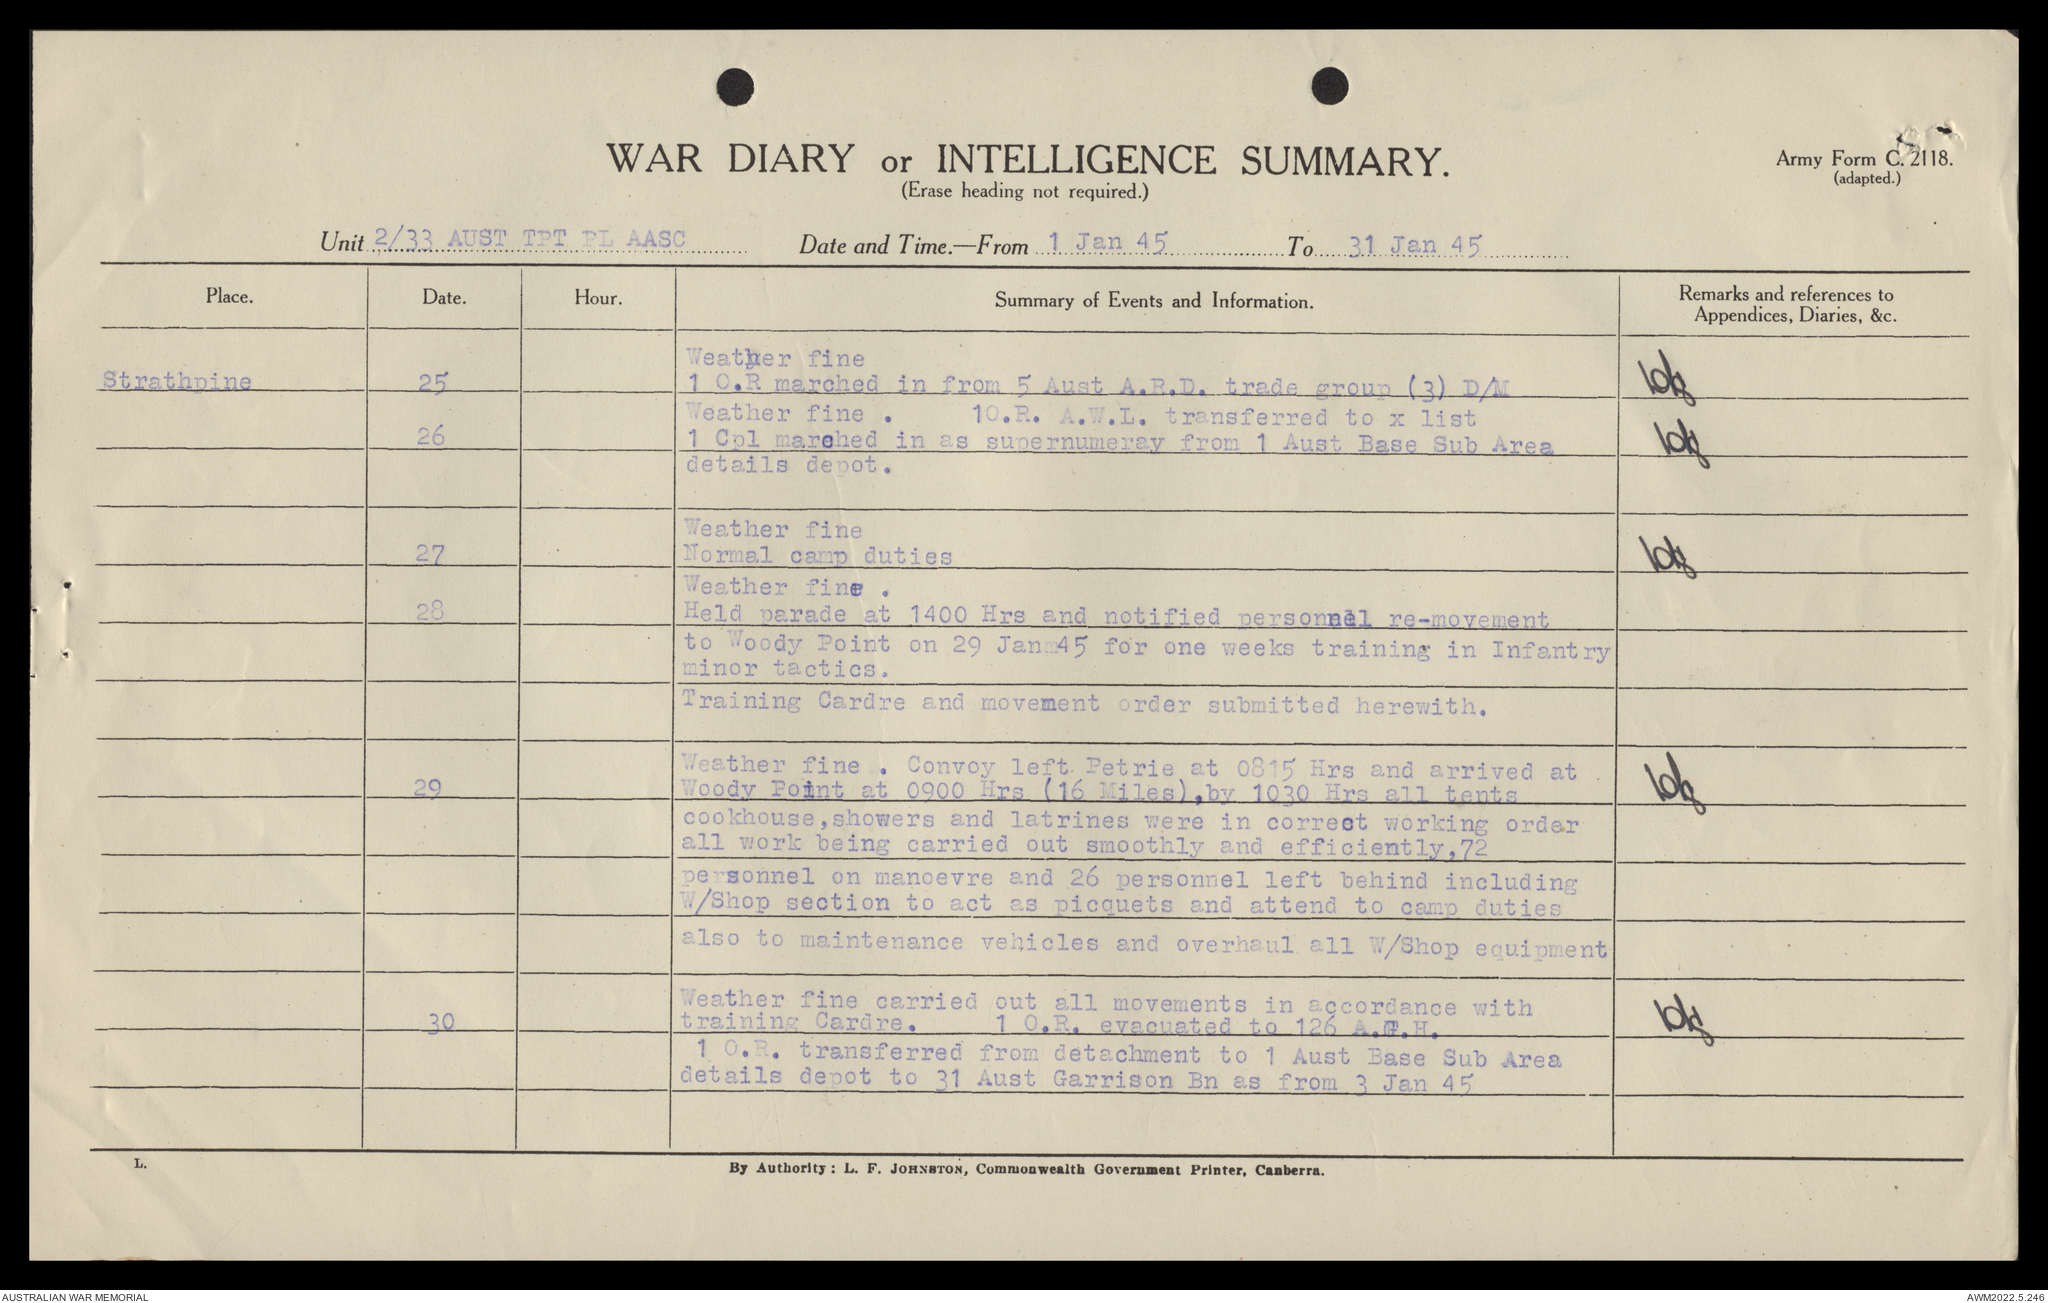 WAR DIARY or INTELLIGENCE SUMMARY.
(Erase heading not required.)
Army Form C. 2118.
(adapted.)
Unit 2/33 AUST TPT PL AASC Date and Time.—From 1 Jan 45 To 31 Jan 45
Place. Date. Hour. Summary of Events and Information. Remarks and references to
Appendices, Diaries, &c.
Weather fine
Strathpine 25 1 O.R marched in from 5 Aust A.R.D. trade group (3) D/M
Weather fine . 1O.R. A.W.L. transferred to x list
26 1 Cpl marched in as supernumeray from 1 Aust Base Sub Area
details depot.
Weather fine
27 Normal camp duties
Weather fine .
28 Held parade at 1400 Hrs and notified personnel re-movement
to Woody Point on 29 Jan 45 for one weeks training in Infantry
minor tactics.
Training Cardre and movement order submitted herewith.
Weather fine . Convoy left Petrie at 0815 Hrs and arrived at
29 Woody Point at 0900 Hrs (16 Miles),by 1030 Hrs all tents
cookhouse,showers and latrines were in correct working order
all work being carried out smoothly and efficiently,72
personnel on manoevre and 26 personnel left behind including
W/Shop section to act as picquets and attend to camp duties
also to maintenance vehicles and overhaul all W/Shop equipment
Weather fine carried out all movements in accordance with
30 training Cardre. 1 O.R. evacuated to 126 A.G.H.
1 O.R. transferred from detachment to 1 Aust Base Sub Area
details depot to 31 Aust Garrison Bn as from 3 Jan 45
L.
By Authority: L. F. JOHNSTON, Commonwealth Government Printer, Canberra.
AUSTRALIAN WAR MEMORIAL
AWM2022.5.246